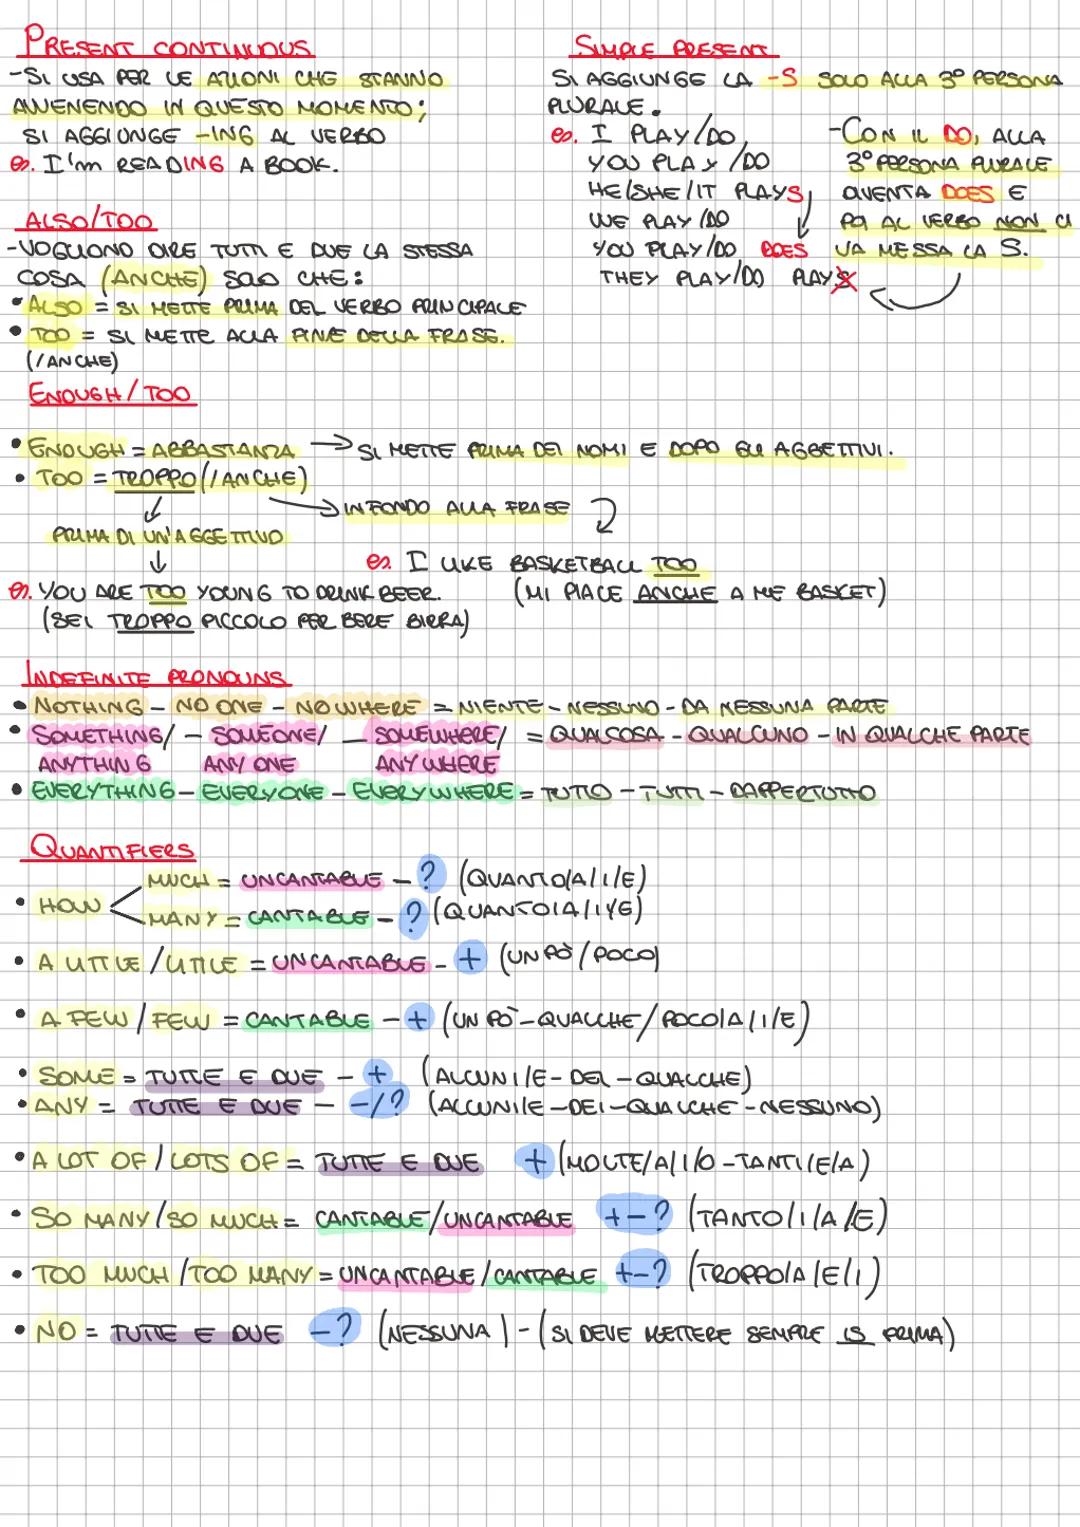 PRESENT CONTINUOUS
-SI USA PER LE AZIONI CHE STANNO
AVVENENDO IN QUESTO MOMENTO;
SI AGGIUNGE -ING AL VERBO
es. I'm READING A BOOK.
SIMPLE PRESENT
SI AGGIUNGE LA -S SOLO ALLA 3° PERSONA
PLURALE.
es. I PLAY/DO
YOU PLAY/DO
HE/SHE/IT PLAYS
WE PLAY/DO
YOU PLAY/DO DOES
THEY PLAY/DO PLAYS
-CON IL DO, ALLA
3° PERSONA PLURALE
DIVENTA DOES E
POI AL VERBO NON CI
VA MESSA LA S.
ALSO/TOO
-VOGLIONO DIRE TUTTI E DUE LA STESSA
COSA (ANCHE) SOLO CHE:
• ALSO = SI METTE PRIMA DEL VERBO PRINCIPALE
• TOO = SI METTE ALLA FINE DELLA FRASE.
(/ANCHE)
ENOUGH/TOO
• ENOUGH = ABBASTANZA → SI METTE PRIMA DEI NOMI E DOPO GLI AGGETTIVI.
• TOO = TROPPO (/ANCHE)
→ IN FONDO ALLA FRASE
PRIMA DI UN'AGGETTIVO
es. I LIKE BASKETBALL TOO
(MI PIACE ANCHE A ME BASKET)
es. YOU ARE TOO YOUNG TO DRINK BEER.
(SEI TROPPO PICCOLO PER BERE BIRRA)
INDEFINITE PRONOUNS
• NOTHING - NO ONE - NOWHERE = NIENTE - NESSUNO - DA NESSUNA PARTE
• SOMETHING/ - SOMEONE/ - SOMEWHERE/ = QUALCOSA - QUALCUNO - IN QUALCHE PARTE
ANYTHING ANY ONE ANYWHERE
• EVERYTHING - EVERYONE - EVERYWHERE = TUTTO - TUTTI - DAPPERTUTTO
QUANTIFIERS
• HOW
MUCH = UNCANTABLE - ? (QUANTO/A/I/E)
MANY = CANTABLE - ? (QUANTO/A/I/E)
• A LITTLE/LITTLE = UNCANTABLE - + (UN PÒ/POCO)
• A FEW/FEW = CANTABLE - + (UN PÒ-QUALCHE/POCO/A/I/E)
• SOME = TUTTE E DUE - + (ALCUNI/E-DEI-QUALCHE)
• ANY = TUTTE E DUE - -/? (ALCUNI/E-DEI-QUALCHE-NESSUNO)
• A LOT OF/LOTS OF = TUTTE E DUE + (MOLTE/A/I/O-TANTI/E/A)
• SO MANY/SO MUCH = CANTABLE/UNCANTABLE +-? (TANTO/I/A/E)
• TOO MUCH/TOO MANY = UNCANTABLE/CANTABLE +-? (TROPPO/A/E/I)
• NO = TUTTE E DUE -? (NESSUNA) - (SI DEVE METTERE SEMPRE IS PRIMA)